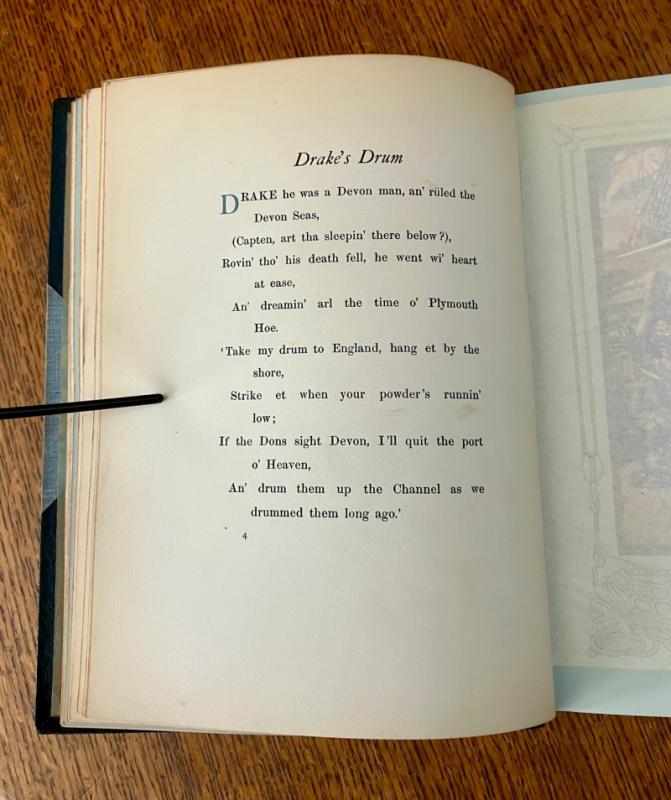 Drake's Drum
DRAKE he was a Devon man, an' rüled the
Devon Seas,
(Capten, art tha sleepin' there below?),
Rovin' tho' his death fell, he went wi' heart
at ease,
An' dreamin' arl the time o' Plymouth
Hoe.
'Take my drum to England, hang et by the
shore,
Strike et when your powder's runnin'
low;
If the Dons sight Devon, I'll quit the port
o' Heaven,
An' drum them up the Channel as we
drummed them long ago.'
4